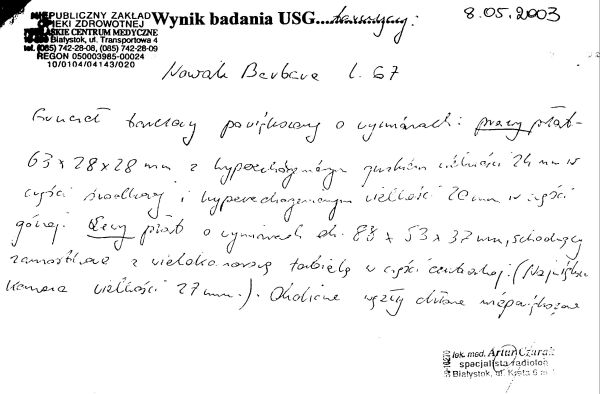 NIEPUBLICZNY ZAKŁAD
OPIEKI ZDROWOTNEJ
PODLASKIE CENTRUM MEDYCZNE
Białystok, ul. Transportowa 4
tel. (085) 742-28-08, (085) 742-28-09
REGON 050003985-00024
10/0104/04143/020
Wynik badania USG....tarczycy:
8.05.2003
Nowak Barbara l. 67
Gruczoł tarczowy powiększony o wymiarach: prawy płat-
63 x 28 x 28 mm z hypoechogennym guzkiem wielkości 24 mm w
części środkowej i hyperechogennym wielkości 20 mm w części
górnej. Lewy płat o wymiarach ok. 88 x 53 x 37 mm, schodzący
zamostkowo z wielokomorową torbielą w części centralnej. (Największa
komora wielkości 27 mm.). Okoliczne węzły chłonne niepowiększone
lek. med. Artur
specjalista radiolog
Białystok, ul. Kręta